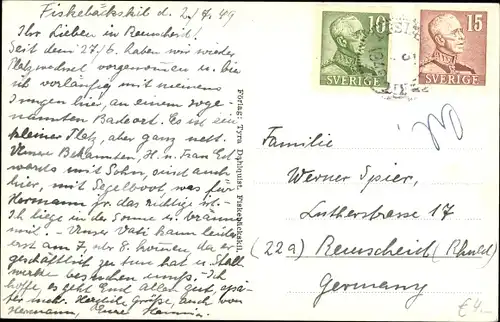 Fiskebäckskil d. 2/7.49
Ihr Lieben in Remscheid!
Seit dem 27/6. haben wir wieder
Platzwechsel vorgenommen u. bin
ich vorläufig mit meinem
Jungen hier, an einem soge-
nannten Badeort. Es ist ein
kleiner Platz, aber ganz nett.
Unsere Bekannten, H. u. Frau Ed
wards mit Sohn, sind auch
hier, mit Segelboot, was für
Hermann ja das richtige ist.
Ich liege in der Sonne u. bräune
mich. - Unser Vati kann leider
erst am 7. oder 8. kommen, da er
geschäftlich zu tun hat u.
werke besuchen muss. Ich
hoffe, es geht Euch allen gut.
Herzliche Grüße, auch von
Hermann, Eure
Förlag: Tyra Dahlquist, Fiskebäckskil.
10
SVERIGE
15
SVERIGE
Familie
Werner Spier,
Lutherstrasse 17
(22a) Remscheid (Rhld)
Germany
€4.-